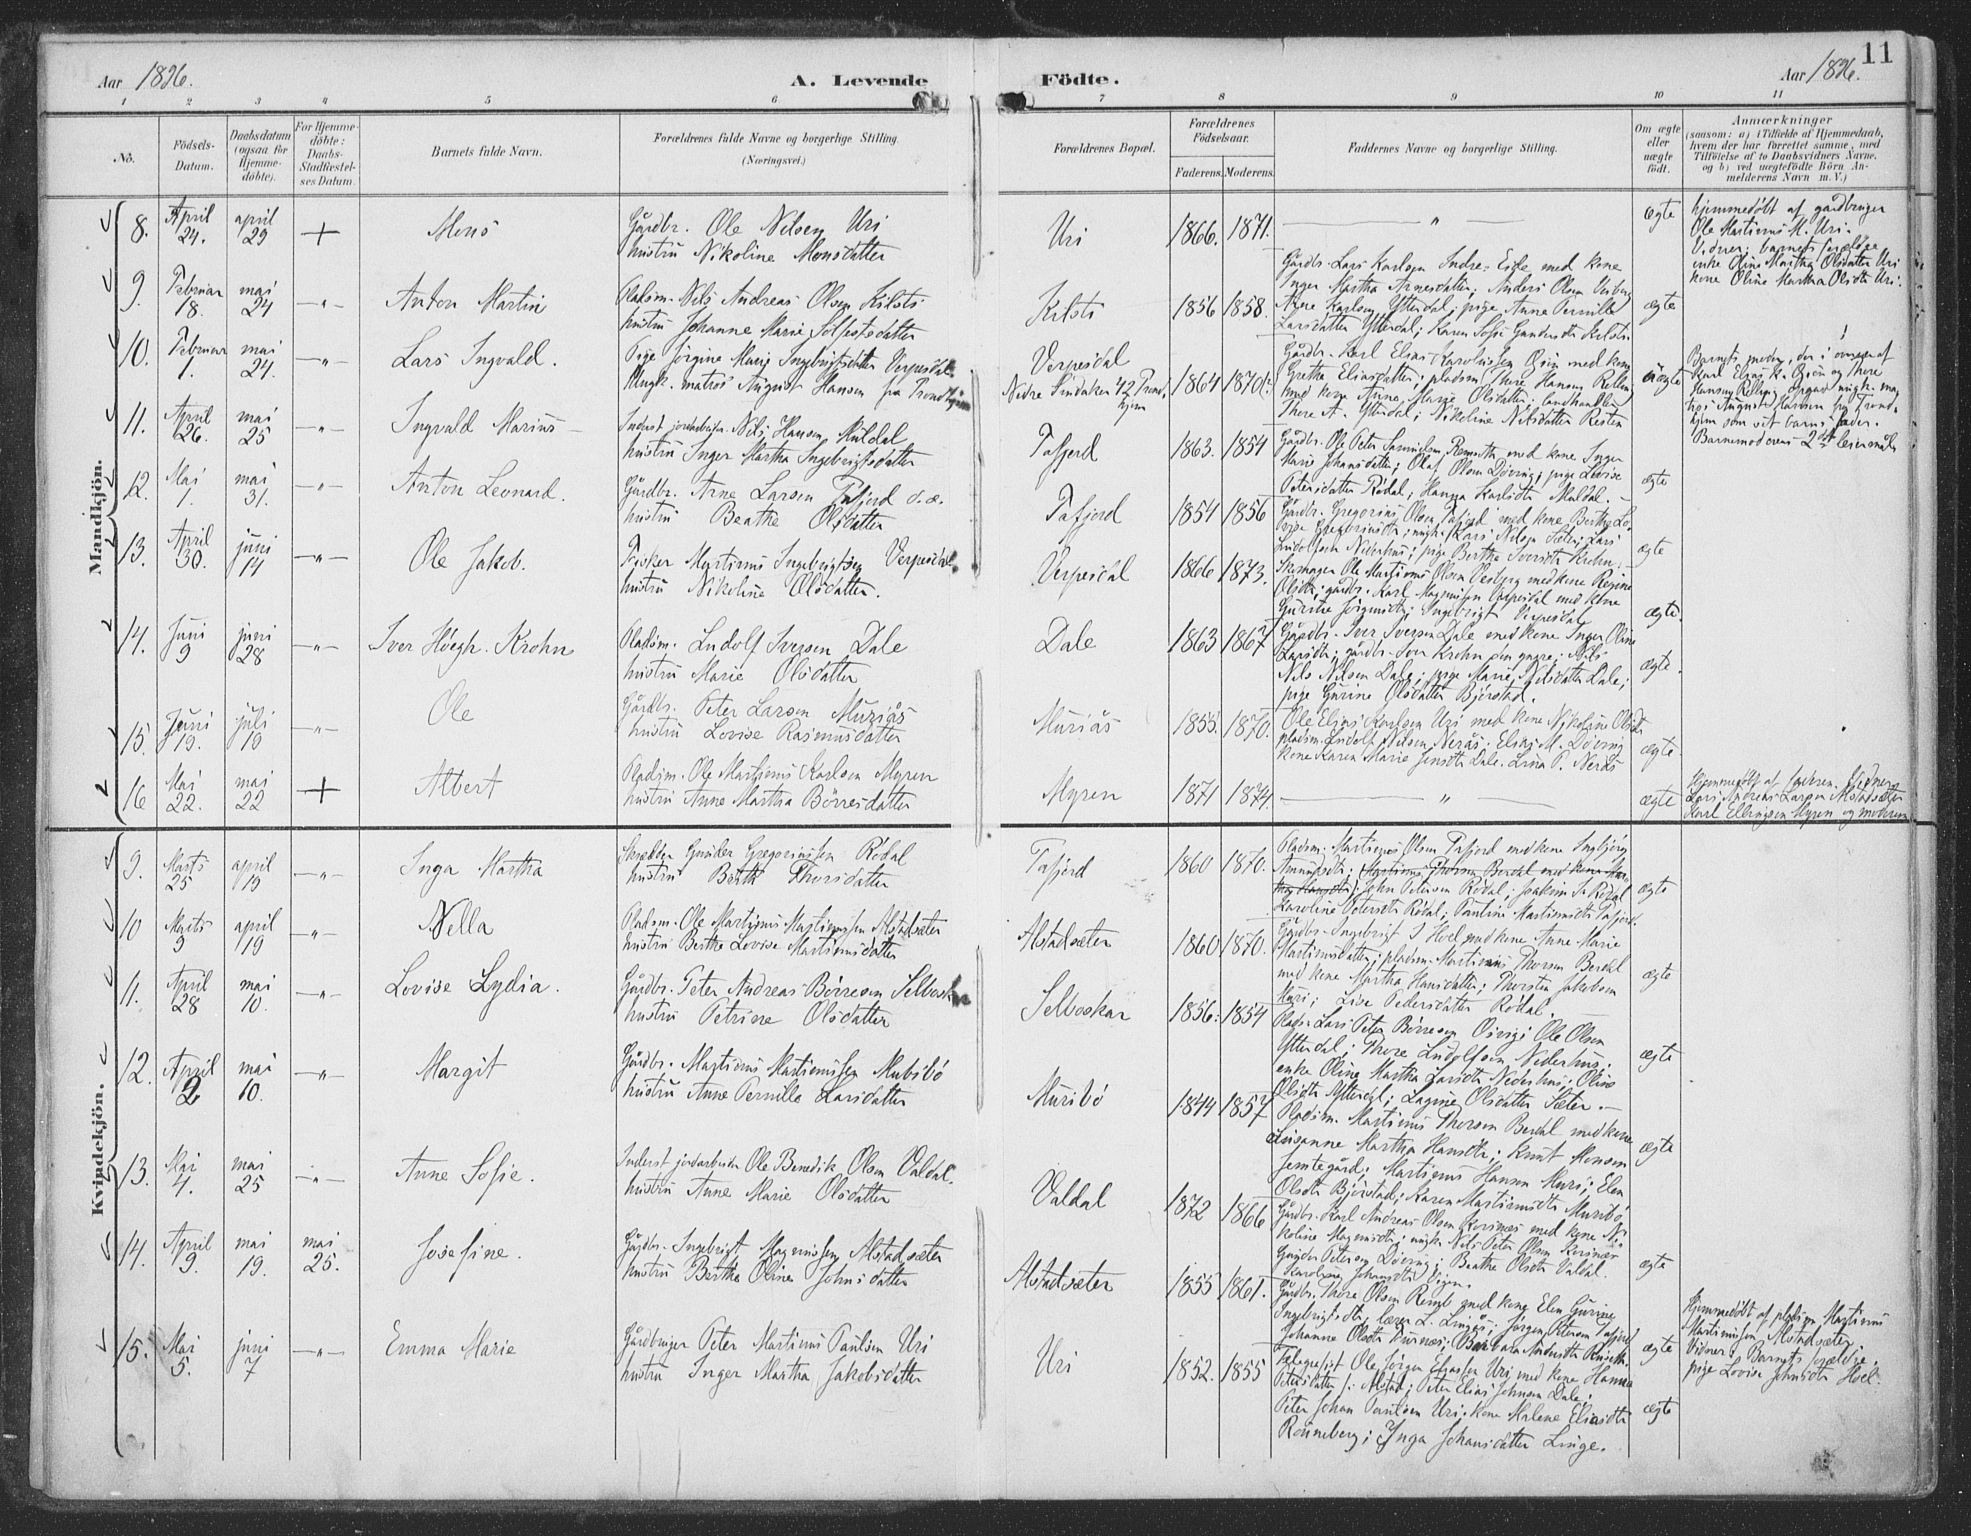 Aar 1896.
A. Levende
Födte.
Aar 1896.
11
1 2 3 4 5 6 7 8 9 10 11
No.
Födsels-
Datum.
Daabsdatum
(ogsaa for
Hjemme-
döbte).
For Hjemme-
döbte:
Daabs-
Stadfæstel-
ses Datum.
Barnets fulde Navn.
Forældrenes fulde Navne og borgerlige Stilling.
(Næringsvei.)
Forældrenes Bopæl.
Forældrenes
Födselsaar.
Faderens. Moderens.
Faddernes Navne og borgerlige Stilling.
Om ægte
eller
uægte
födt.
Anmærkninger
(saasom: a) i Tilfælde af Hjemmedaab,
hvem der har forrettet samme, med
Tilföielse af to Daabsvidners Navne,
og b) ved uægtefödte Börn An-
melderens Navn m. V.)
Mandkjön.
8. April 24. april 29 + Mons
Gårdbr. Ole Nilsen Uri
hustru Nikoline Monsdatter
Uri 1866. 1871. — " — ægte
hjemmedöbt af gardbruger
Ole Martinus M. Uri.
Vidner: barnets forældre
enke Oline Martha Olsdatter Uri
kone Oline Martha Olsdtr Uri.
9. Februar 18. mai 24 -"- Anton Martin
Pladsm. Nils Andreas Olsen Kilsti
hustru Johanne Marie Sylfestsdatter
Kilsti 1856 1858. ægte
Gårdbr. Lars Karlsen Indre-Eide med kone
Inger Martha Arnesdatter; Anders Olsen
Arne Karlsen Ytterdal; pige Anne Pernille
Larsdatter Ytterdal; Karen Sofie Gundersdtr Kilsti.
10. Februar 1. mai 24. -"- Lars Ingvald.
Pige Jörgine Marie Ingebrigtsdatter Verpesdal
Ungk. matros August Hansen fra Trondhjem
Verpesdal
Nedre 42 Trond.
hjem
1864 1870(?) uægte
Gårdbr. Karl Elias Karolussen Öien med kone
Grethe Eliasdatter; pladsm. Thore Hansen Relling
med kone Anne Marie Olsdatter; landhandler
Thore A. Ytterdal; Nikoline Nilsdatter Resten
Barnets moder, der i overvær af
Karl Elias K. Öien og Thore
Hansen Relling opgav ungk. ma-
tros August Hansen fra Trond-
hjem som sit barns fader.
Barnemoderens 2det leiermål.
11. April 26. mai 25 -"- Ingvald Marius
Inderst jordarbeider Nils Hansen Muldal
hustru Inger Martha Ingebrigtsdatter
Tafjord 1863. 1854
Gårdbr. Ole Peter Samuelsen Remseth med kone Inger
Marie Johansdatter; Olaf Olsen Döving; pige Lovise
Petersdatter Rödal; Hanna Karlsdtr Muldal. — ægte
12. Mai 1. mai 31. -"- Anton Leonard.
Gårdbr. Arne Larsen Tafjord d.æ.
hustru Beathe Olsdatter
Tafjord 1854 1856
Gårdbr. Gregorius Olsen Tafjord med kone Berthe Lo-
vise Gregoriusdtr; ungk. Lars Nilsen Sæter; Lars
Ludolfsen Nederhus; pige Berthe Iversdtr Krohn. — ægte
13. April 30. juni 14 -"- Ole Jakob.
Fisker Martinus Ingebrigtsen Verpesdal
hustru Nikoline Olsdatter.
Verpesdal 1866 1873.
Skomager Ole Martinus Olsen Vesteng med kone Regine
Olsdtr; gårdbr. Karl Magnussen Verpesdal med kone
Gurine Jörgensdtr; Ingebrigt Verpesdal ægte.
14. Juni 9 juni 28 -"- Iver Höegh. Krohn
Pladsm. Ludolf Iversen Dale
hustru Marie Olsdatter
Dale 1863 1867
Gårdbr. Iver Iversen Dale med kone Inger Oline
Larsdtr; gårdbr. Iver Krohn den yngre; Nils
Nils Nilsen Dale; pige Marie Nilsdatter Dale;
pige Gurine Olsdatter Björstad. ægte.
15. Juni 19. juli 10 -"- Ole
Gårdbr. Peter Larsen Muriås
hustru Lovise Rasmusdatter
Muriås 1855. 1870.
Ole Elias Karlsen Uri med kone Nikoline Olsdtr
pladsm. Ludolf Nilsen Nerås; Elias M. Döving
kone Karen Marie Jensdtr Dale. Lina P. Nerås ægte.
16 Mai 22. mai 22 + Albert
Pladsm. Ole Martinus Karlsen Myren
hustru Anne Martha Börresdatter
Myren 1871 1874. — " — ægte
Hjemmedöbt af Vidner:
Lars Andreas Larsen Alstadsæter
Karl Ellingsen Myren og moderen
Kvindekjön.
9. Marts 25 april 19 -"- Inga Martha
Skrædder Gunder Gregoriussen Rödal
hustru Berth Thorsdatter
Tafjord 1860 1870.
Pladsm. Martinus Olsen Tafjord med kone Ingbjörg
Amundsdtr; Martinus Thorsen Berdal med kone Mar-
tha Hansdtr; John Petersen Rödal; Joakim Rödal
Karoline Petersdtr Rödal; Pauline Martinusdtr Tafjord. ægte
10 Marts 9 april 19 -"- Nella
Pladsm. Ole Martinus Martinussen Alstadsæter
hustru Berthe Lovise Martinusdatter
Alstadsæter 1860 1870.
Gårdbr. Ingebrigt J Hoel med kone Anne Marie
Martinusdatter; pladsm. Martinus Thorsen Berdal
med kone Martha Hansdatter; Thorsten Jakobsen
Muri; Lise Pedersdatter Rödal. — ægte
11. April 28 mai 10. -"- Lovise Lydia.
Gårdbr. Peter Andreas Börresen Selboskar
hustru Petrine Olsdatter
Selboskar 1856. 1854
Pladsm. Lars Peter Börresen Ole Olsen
Ytterdal; Thore Ludolfsen Nederhus;
enke Oline Martha Larsdtr Nederhus; Oline
Olsdtr Ytterdal; Lagine Olsdatter Sæter. — ægte
12. April 2 mai 10. -"- Margit
Gårdbr. Martinus Martinussen Muribö
hustru Anne Pernille Larsdatter
Muribö 1844 1857
Pladsm. Martinus Thorsen Berdal med kone
Susanne Martha Hansdtr; Knut Monsen
Jemtegård; Martinus Hansen Muri; Elen
Olsdtr Björstad; Karen Martinusdtr Muribö. ægte
13. Mai 4. mai 25 -"- Anne Sofie.
Inderst jordarbeider Ole Benedik Olsen Valdal.
hustru Anne Marie Olsdatter
Valdal 1872 1866
Gårdbr. Karl Andreas Olsen Korsnæs med kone Ni-
koline Magnusdtr; ungk. Nils Peter Olsen Korsnæs
Gunder Petersen Döving; Beathe Olsdtr Valdal.
Karoline Johansdtr ægte
14. April 9. mai 19. mai 25. Josefine.
Gårdbr. Ingebrigt Magnussen Alstadsæter
hustru Berthe Oline Johnsdatter
Alstadsæter 1855 1861.
Gårdbr. Thore Olsen Remb med kone Elen Gurine
Ingebrigtsdtr; lærer L. Lingås; Jörgen Petersen Tafjord
Johanne Olsdtr Barbara Andersdtr ægte
Hjemmedöbt af pladsm Martinus
Martinussen Alstadsæter
Vidner: Barnets forældre,
pige Lovise Johnsdtr Hoel.
15. Mai 5. juni 7 -"- Emma Marie
Gårdbruger Peter Martinus Paulsen Uri
hustru Inger Martha Jakobsdatter
Uri 1852. 1855
Telegrafist Ole Jörgen Eliassen Uri med kone Hanna
Petersdatter f. Alstad; Peter Elias Johnsen Dale;
Peter Johan Paulsen Uri; kone Malene Eliasdtr
Rönneberg; Inga Johansdatter Linge. ægte